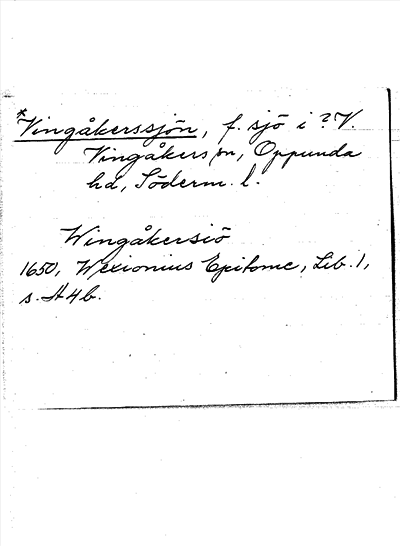 *Vingåkerssjön, f. sjö i ? V.
Vingåkers sn, Oppunda
hd, Söderm. l.
Wingåkersiö
1650, Wexionius Epitome, Lib. 1,
s. A4b.